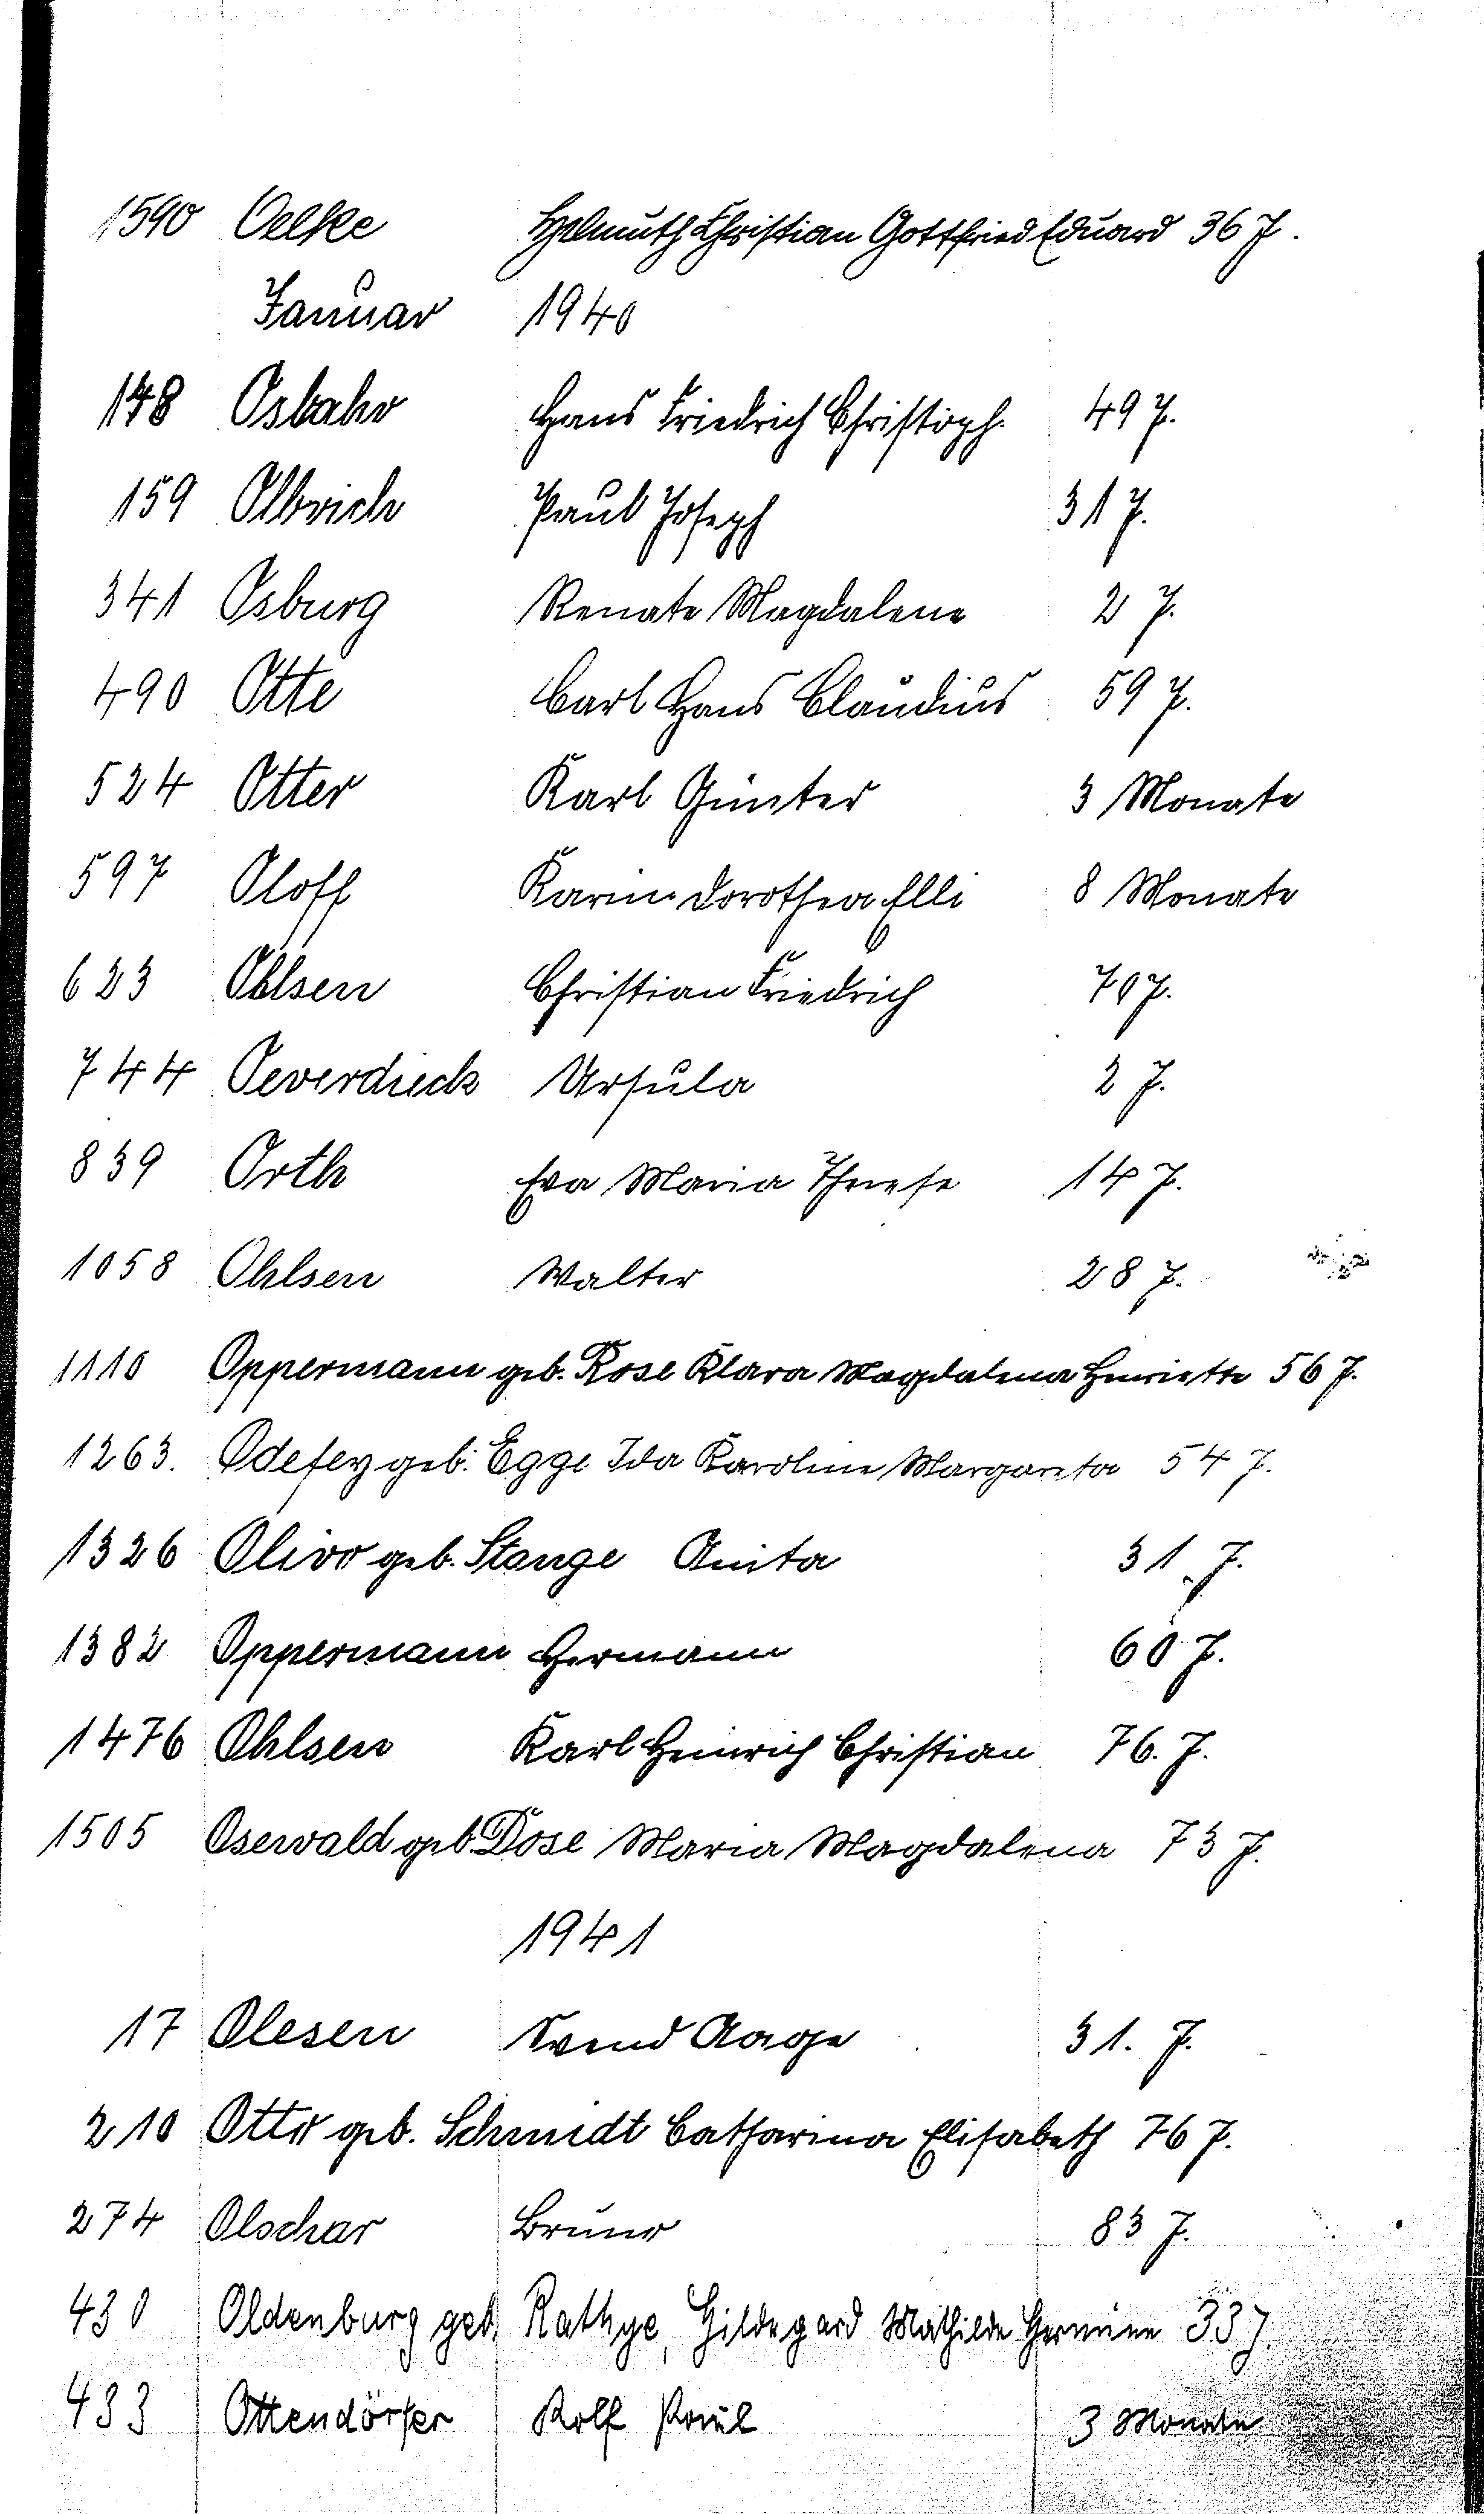 1590 Oelke Helmuth Christian Gottfried Eduard 36 J.
Januar 1940
148 Osbahr Hans Friedrich Christoph. 49 J.
159 Olbrich Paul Joseph 31 J.
341 Osburg Renate Magdalene 2 J.
490 Otte Carl Hans Claudius 59 J.
524 Otter Karl Günter 3 Monate
597 Oloff Karin Dorothea Elli 8 Monate
623 Ohlsen Christian Friedrich 70 J.
744 Oeverdieck Ursula 2 J.
839 Orth Eva Maria Therese 14 J.
1058 Ohlsen Walter 28 J.
1110 Oppermann geb. Rose Klara Magdalena Henriette 56 J.
1263. Odefey geb. Egge Ida Karoline Margareta 54 J.
1326 Olivo geb. Stange Anita 31 J.
1382 Oppermann Hermann 60 J.
1476 Ohlsen Karl Heinrich Christian 76. J.
1505 Oserwald geb. Dose Maria Magdalena 73 J.
1941
17 Olesen Svend Aage 31. J.
210 Otto geb. Schmidt Catharina Elisabeth 76 J.
274 Olschar Bruno 83 J.
430 Oldenburg geb. Rathge, Hildegard Mathilde Hermine 33 J.
433 Ottendörfer Rolf Paul 3 Monate